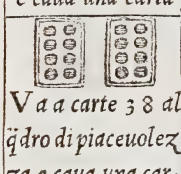 e caua una carta
Va a carte 38 al
q̃dro di piaceuolez
za e caua una car-